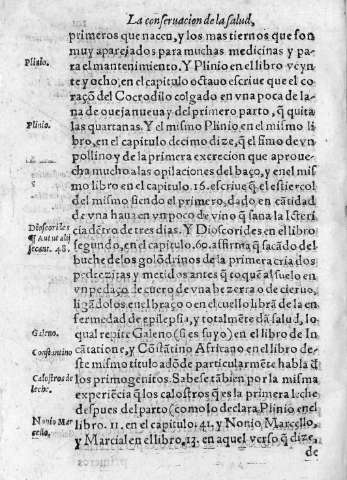 La conseruacion de la salud,
primeros que nacen, y los mas tiernos que son
muy aparejados para muchas medicinas y pa-
ra el mantenimiento. Y Plinio en el libro veyn
te y ocho, en el capitulo octauo escriue que el co
raçõ del Cocrodilo colgado en vna poca de la-
na de oueja nueua y del primero parto, q̃ quita
las quartanas. Y el mismo Plinio, en el mismo li
bro, en el capitulo decimo dize, q̃ el fimo de vn
pollino y de la primera excrecion que aproue-
cha mucho a las opilaciones del baço, y en el mis
mo libro en el capitulo. 16. escriue q̃ el estiercol
del mismo siendo el primero, dado en cãtidad
de vna haua en vn poco de vino q̃ sana la Icteri
cia dẽtro de tres dias. Y Dioscorides en el libro
segundo, en el capitulo. 60. affirma q̃ sacãdo del
buche de los golõdrinos de la primera cria dos
pedrezitas y metidos antes q̃ toquẽ al suelo en
vn pedaço de cuero de vna bezerra o de cieruo,
ligãdolos en el braço o en el cuello librã de la en
fermedad de epilepsia, y totalmẽte dã salud, lo
qual repite Galeno (si es suyo) en el libro de In
cãtatione, y Cõstãtino Africano en el libro de-
ste mismo titulo adõde particularmẽte habla d̃
los primogenitos. Sabese tãbien por la misma
experiẽcia q̃ los calostros q̃ es la primera leche
despues del parto (como lo declara Plinio en el
libro. 11. en el capitulo. 41. y Nonio Marcello,
y Marcial en el libro. 13. en aquel verso q̃ dize,
de
Plinio.
Plinio.
Dioscorides
Galeno.
Constantino
Calostros de
leche.
Nonio Mar
cello.